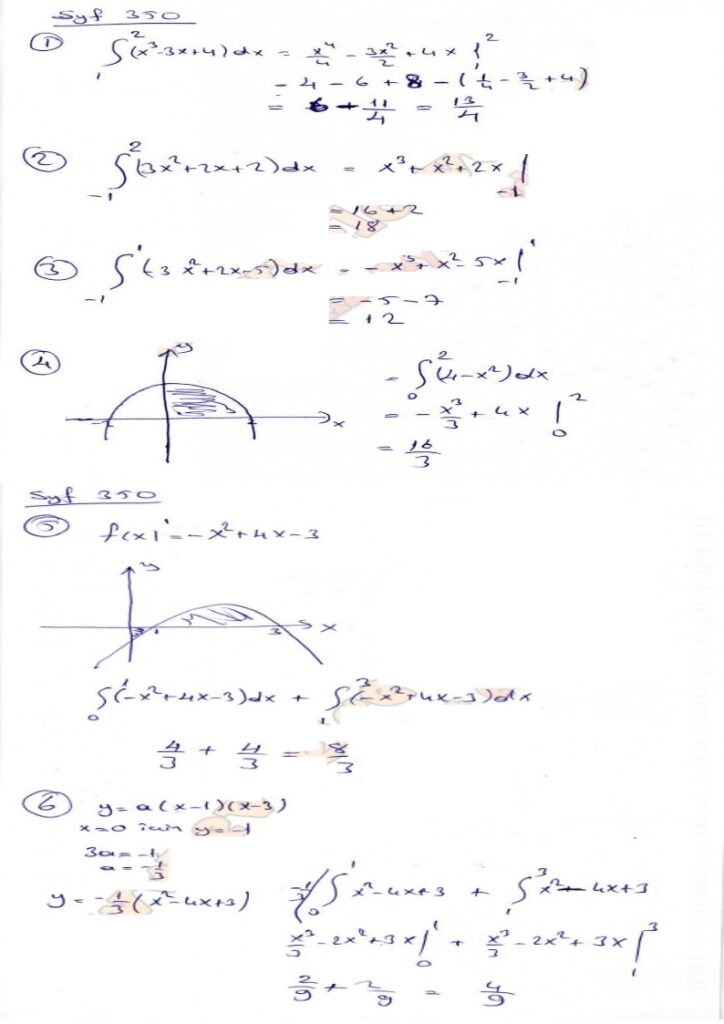 Syf 350
① ∫₁²(x³-3x+4)dx = x⁴/4 - 3x²/2 + 4x |₁²
= 4 - 6 + 8 - (1/4 - 3/2 + 4)
= 6 + 11/4 = 13/4
② ∫₋₁²(3x²+2x+2)dx = x³+x²+2x |₋₁
= 16+2
= 18
③ ∫₋₁¹(-3x²+2x-5)dx = -x³+x²-5x |₋₁¹
= -5-7
= 12
④ y
x
= ∫₀²(4-x²)dx
= -x³/3 + 4x |₀²
= 16/3
Syf 350
⑤ f(x) = -x²+4x-3
y
1 3 x
∫₀¹(-x²+4x-3)dx + ∫₁³(-x²+4x-3)dx
4/3 + 4/3 = 8/3
⑥ y=a(x-1)(x-3)
x=0 icin y=-1
3a=-1
a=-1/3
y=-1/3(x²-4x+3)
-1/3 ∫₀¹ x²-4x+3 + ∫₁³ x²-4x+3
x³/3-2x²+3x |₀¹ + x³/3-2x²+3x |₁³
2/9 + 2/9 = 4/9